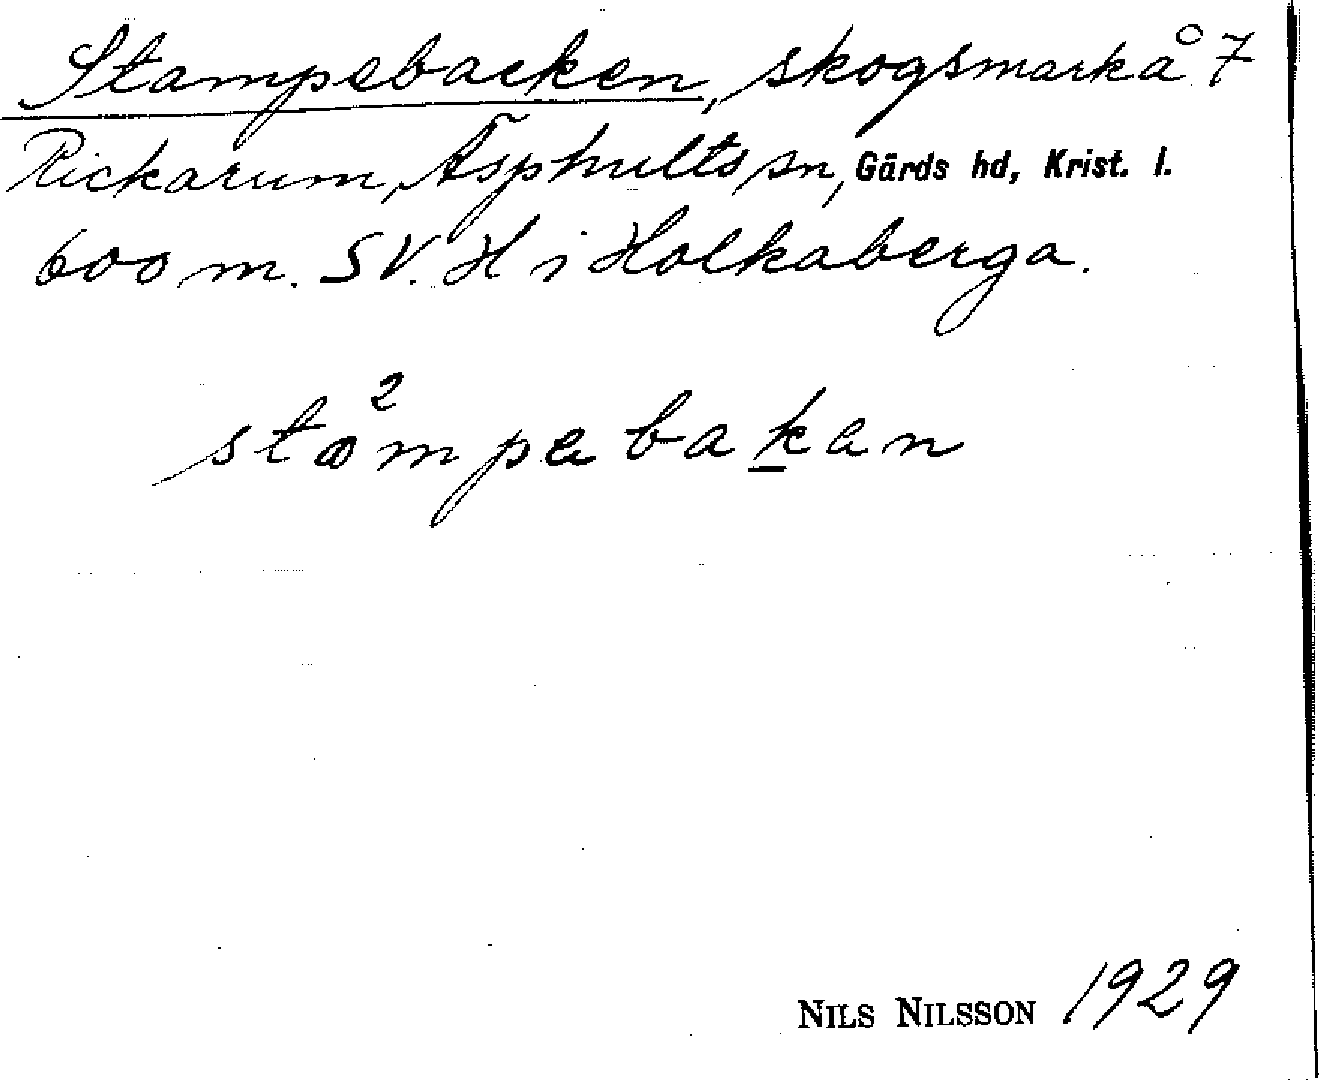 Stampebacken, skogsmark å 7
Rickarum, Äsphults sn, Gärds hd, Krist. l.
600 m. SV. H i Holkaberga.
sta²mpebakan
NILS NILSSON 1929